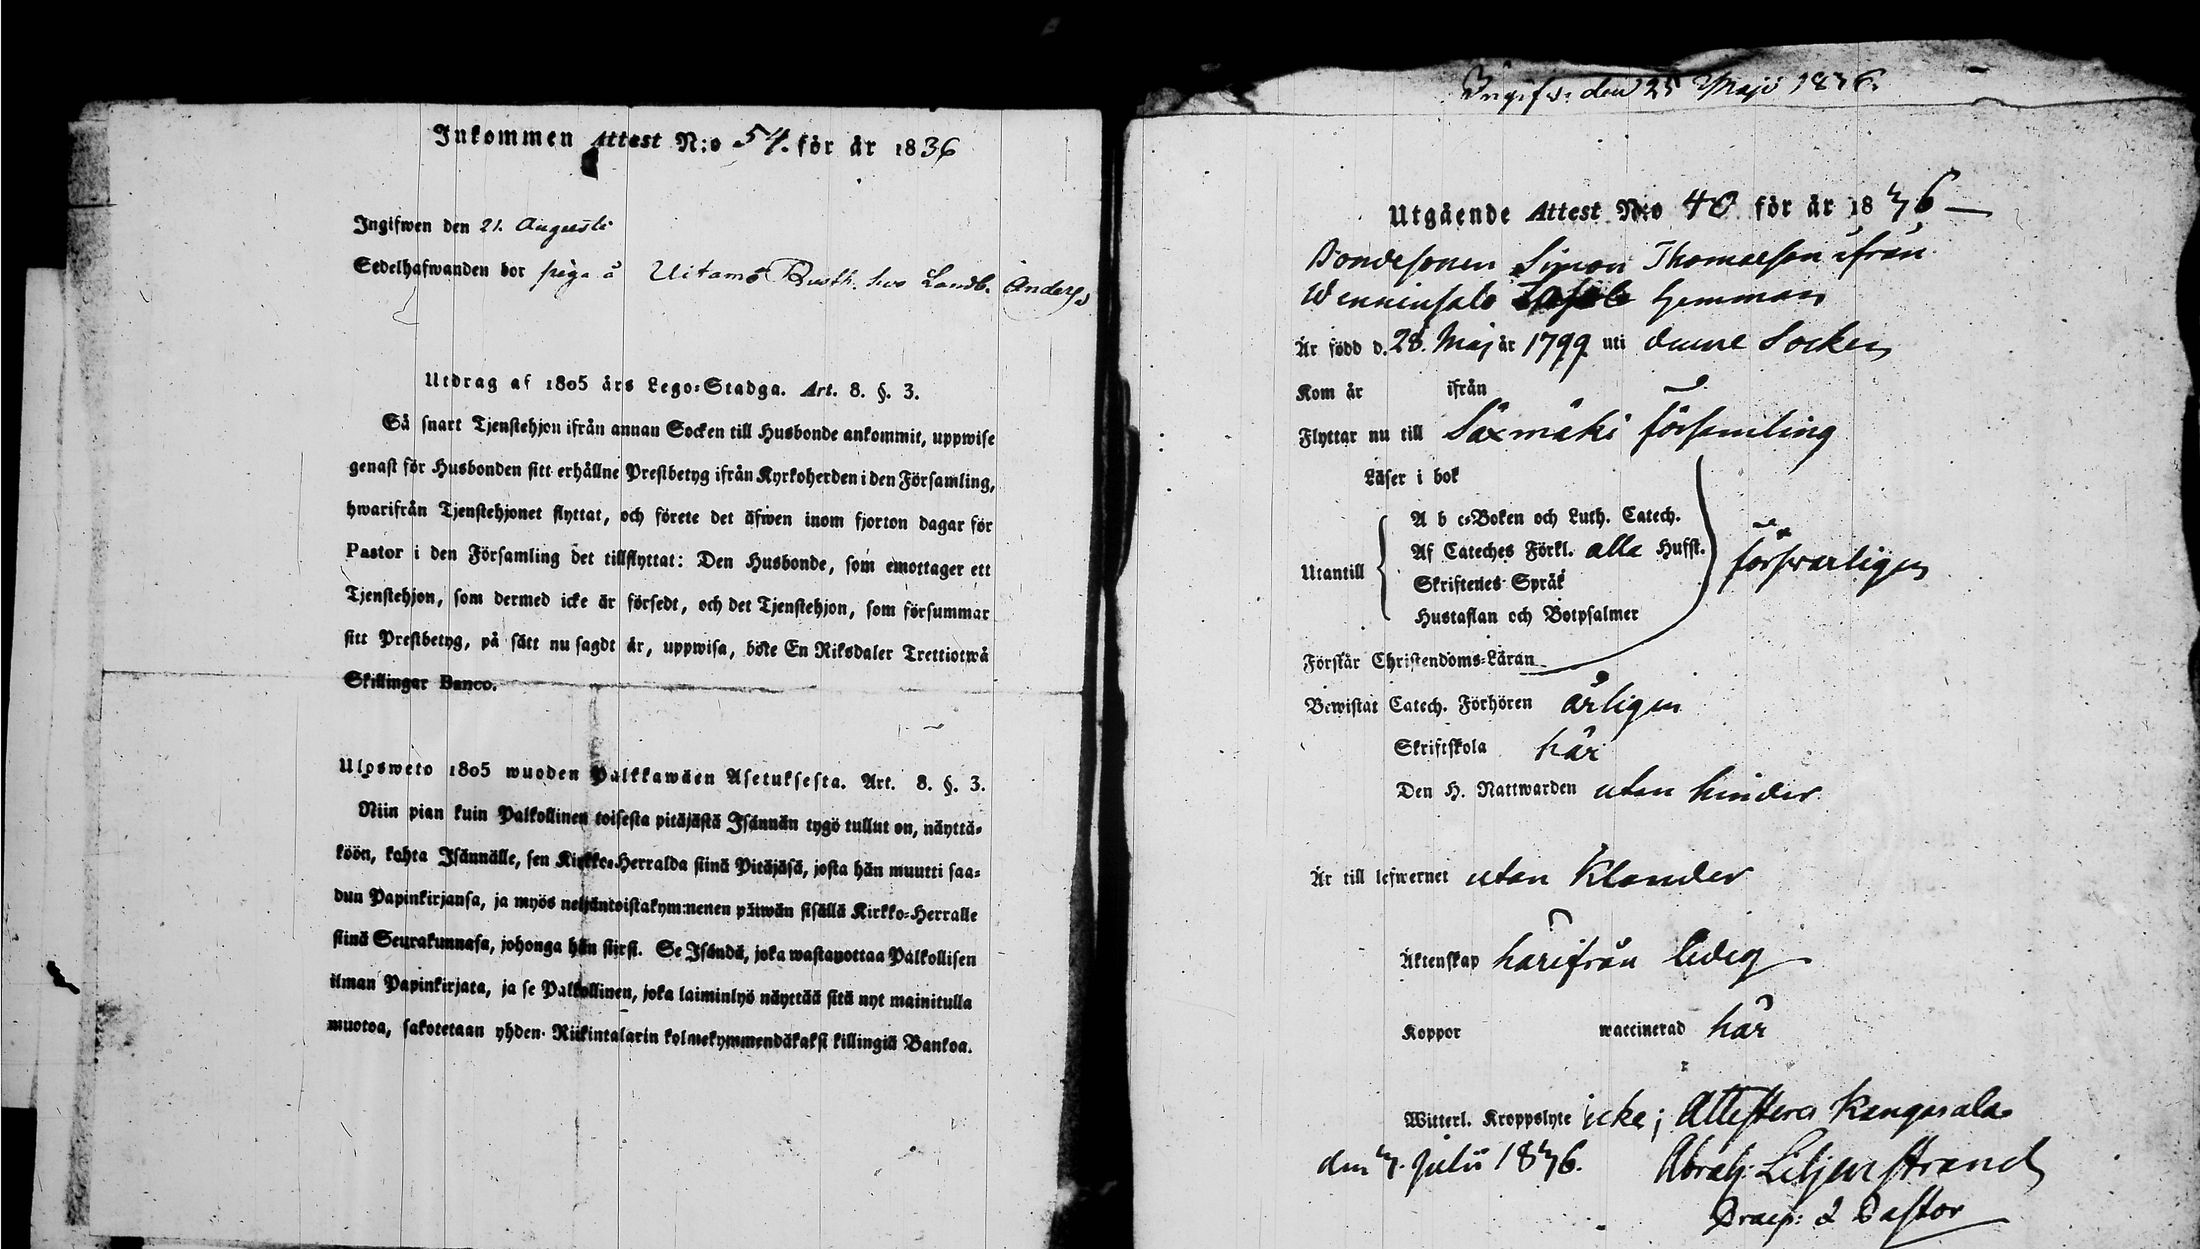 Inkommen Attest N:o 54. för år 1836
Ingifwen den 21. Augusti
Sedelhafwanden bor piga å Uitamo Rusth. hos Landb. Anders
Utdrag af 1805 års Lego-Stadga. Art. 8. §. 3.
Så snart Tjenstehjon ifrån annan Socken till Husbonde ankommit, uppwise
genast för Husbonden sitt erhållne Prestbetyg ifrån Kyrkoherden i den Församling,
hwarifrån Tjenstehjonet flyttat, och förete det äfwen inom fjorton dagar för
Pastor i den Församling det tillflyttat: Den Husbonde, som emottager ett
Tjenstehjon, som dermed icke är försedt, och det Tjenstehjon, som försummar
sitt Prestbetyg, på sätt nu sagdt är, uppwisa, böte En Riksdaler Trettiotwå
Skillingar Banco.
Ulosweto 1805 wuoden Palkkawäen Asetuksesta. Art. 8. §. 3.
Niin pian kuin Palkollinen toisesta pitäjästä Isännän tygö tullut on, näyttä-
köön, kohta Isännälle, sen Kirkko-Herralda siinä Pitäjäsä, josta hän muutti saa-
dun Papinkirjansa, ja myös neljäntoistakymmenen päiwän sisällä Kirkko-Herralle
siinä Seurakunnasa, johonga hän siirsi. Se Isändä, joka wastanottaa Palkollisen
ilman Papinkirjata, ja se Palkollinen, joka laiminlyö näyttää sitä nyt mainitulla
muotoa, sakotetaan yhden Riikintalarin kolmekymmendäkaksi killingiä Bankoa.
Ingifw: den 25 Maji 1836.
Utgående Attest N:o 40 för år 1836
Bondesonen Simon Thomasson ifrån
Wenninsalo hemman
Är född d. 28. Maj år 1799 uti denne Socken
Kom år ifrån
Flyttar nu till Säxmäki församling
Läser i bok
A b c-Boken och Luth. Catech.
Af Cateches Förkl. alla Hufst.
Utantill försvarligen
Skriftenes Språk
Hustaflan och Botpsalmer
Förstår Christendoms-Läran
Bewistat Catech. Förhören årligen
Skriftskola här
Den H. Nattwarden utan hinder
Är till lefwernet utan klander
Äktenskap härifrån ledig
Koppor waccinerad här
Witterl. Kroppslyte icke; Attesterar Kangasala
den 3. Julii 1836. Abrah: Liljenstrand
Praep: & Pastor